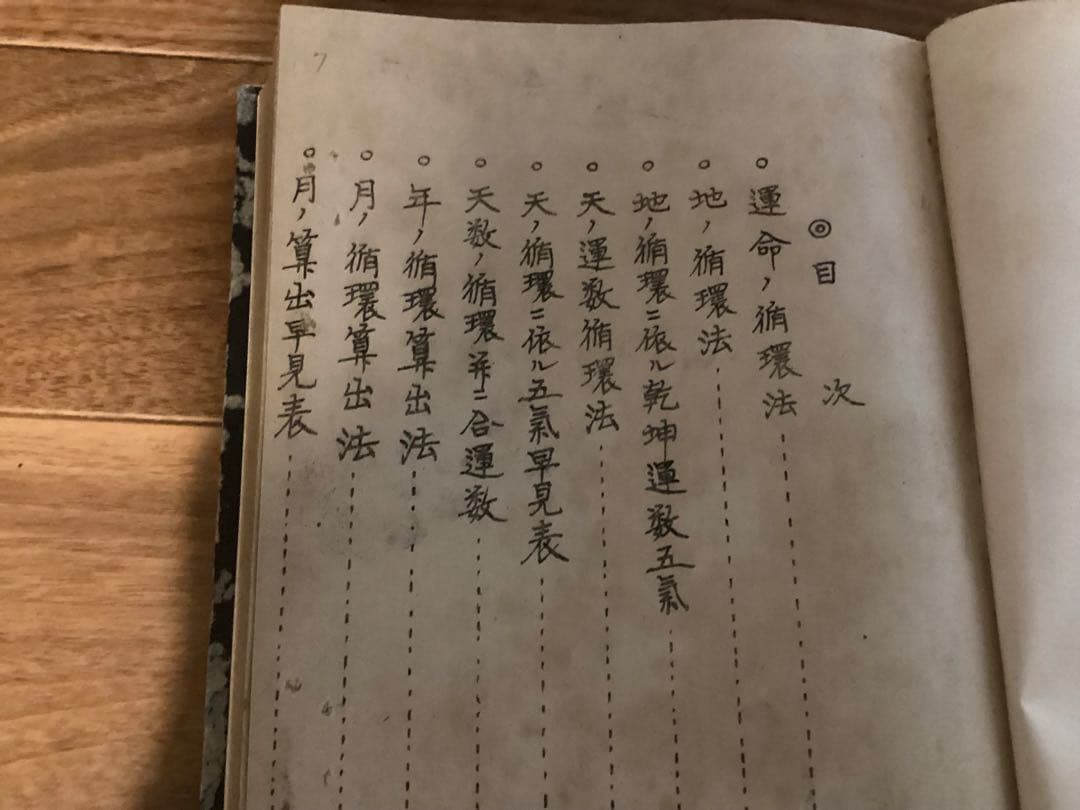 ◎目次
○運命ノ循環法
○地ノ循環法
○地ノ循環ニ依ル乾坤運数五氣
○天ノ運数循環法
○天ノ循環ニ依ル五氣早見表
○天数ノ循環并ニ合運数
○年ノ循環算出法
○月ノ循環算出法
○月ノ算出早見表